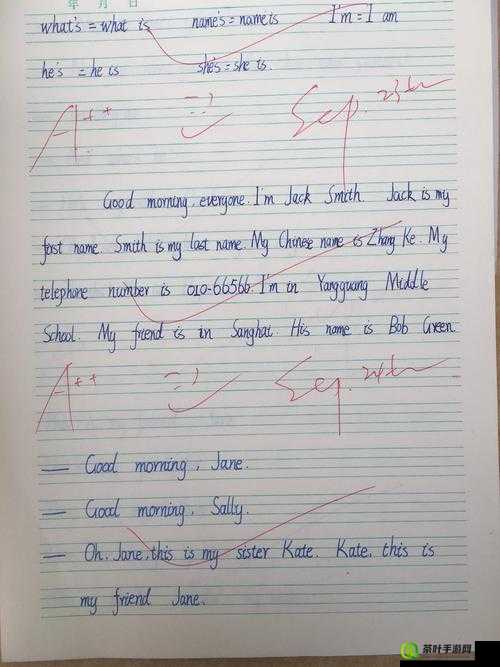 年 月 日
what's = what is name's = name is I'm = I am
he's = he is she's = she is.
A++ Sep. 23th
Good morning, everyone. I'm Jack Smith. Jack is my
fast name. Smith is my last name. My Chinese name is Zhang Ke. My
telephone number is 010-66566. I'm in Yangguang Middle
School. My friend is in Sanghai. His name is Bob Green.
A++ Sep. 24th
— Good morning, Jane.
— Good morning, Sally.
— Oh, Jane, this is my sister Kate. Kate, this is
my friend Jane.
茶叶手游网